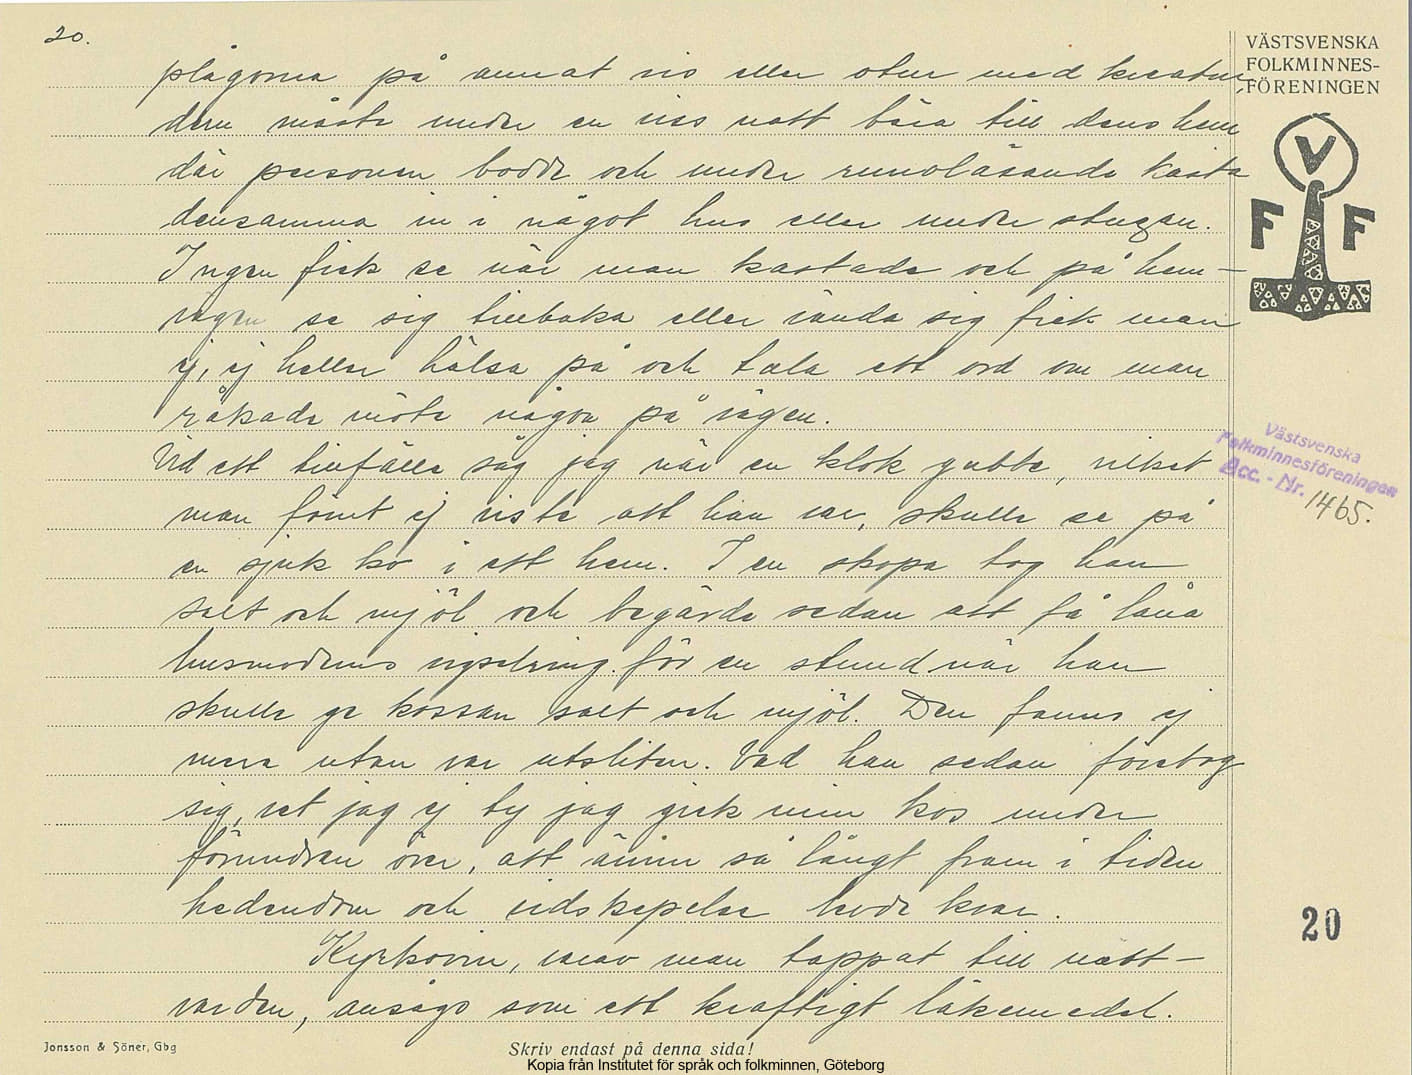 20.
VÄSTSVENSKA
FOLKMINNES-
FÖRENINGEN
V
F F
plågorna på annat vis eller otur med kreatur
dem måste under en viss natt bära till dens hem
där personen bodde och under runoläsande kasta
densamma in i något hus eller under stugan.
Ingen fick se när man kastade och på hem-
vägen se sig tillbaka eller vända sig fick man
ej, ej heller hälsa på och tala ett ord om man
råkade möta någon på vägen.
Vid ett tillfälle såg jag när en klok gubbe, vilket
man förut ej visste att han var, skulle se på
en sjuk ko i ett hem. I en skopa tog han
salt och mjöl och begärde sedan att få låna
husmoderns vigselring för en stund när han
skulle ge kossan salt och mjöl. Den fanns ej
mera utan var utsliten. Vad han sedan företog
sig, vet jag ej ty jag gick min kos under
förundran över, att ännu så långt fram i tiden
hedendom och vidskepelse levde kvar.
Kyrkovin, varav man tappat till natt-
varden, ansågs som ett kraftigt läkemedel.
Västsvenska
Folkminnesföreningen
Acc. - Nr. 1465.
20
Jonsson & Söner, Gbg
Skriv endast på denna sida!
Kopia från Institutet för språk och folkminnen, Göteborg